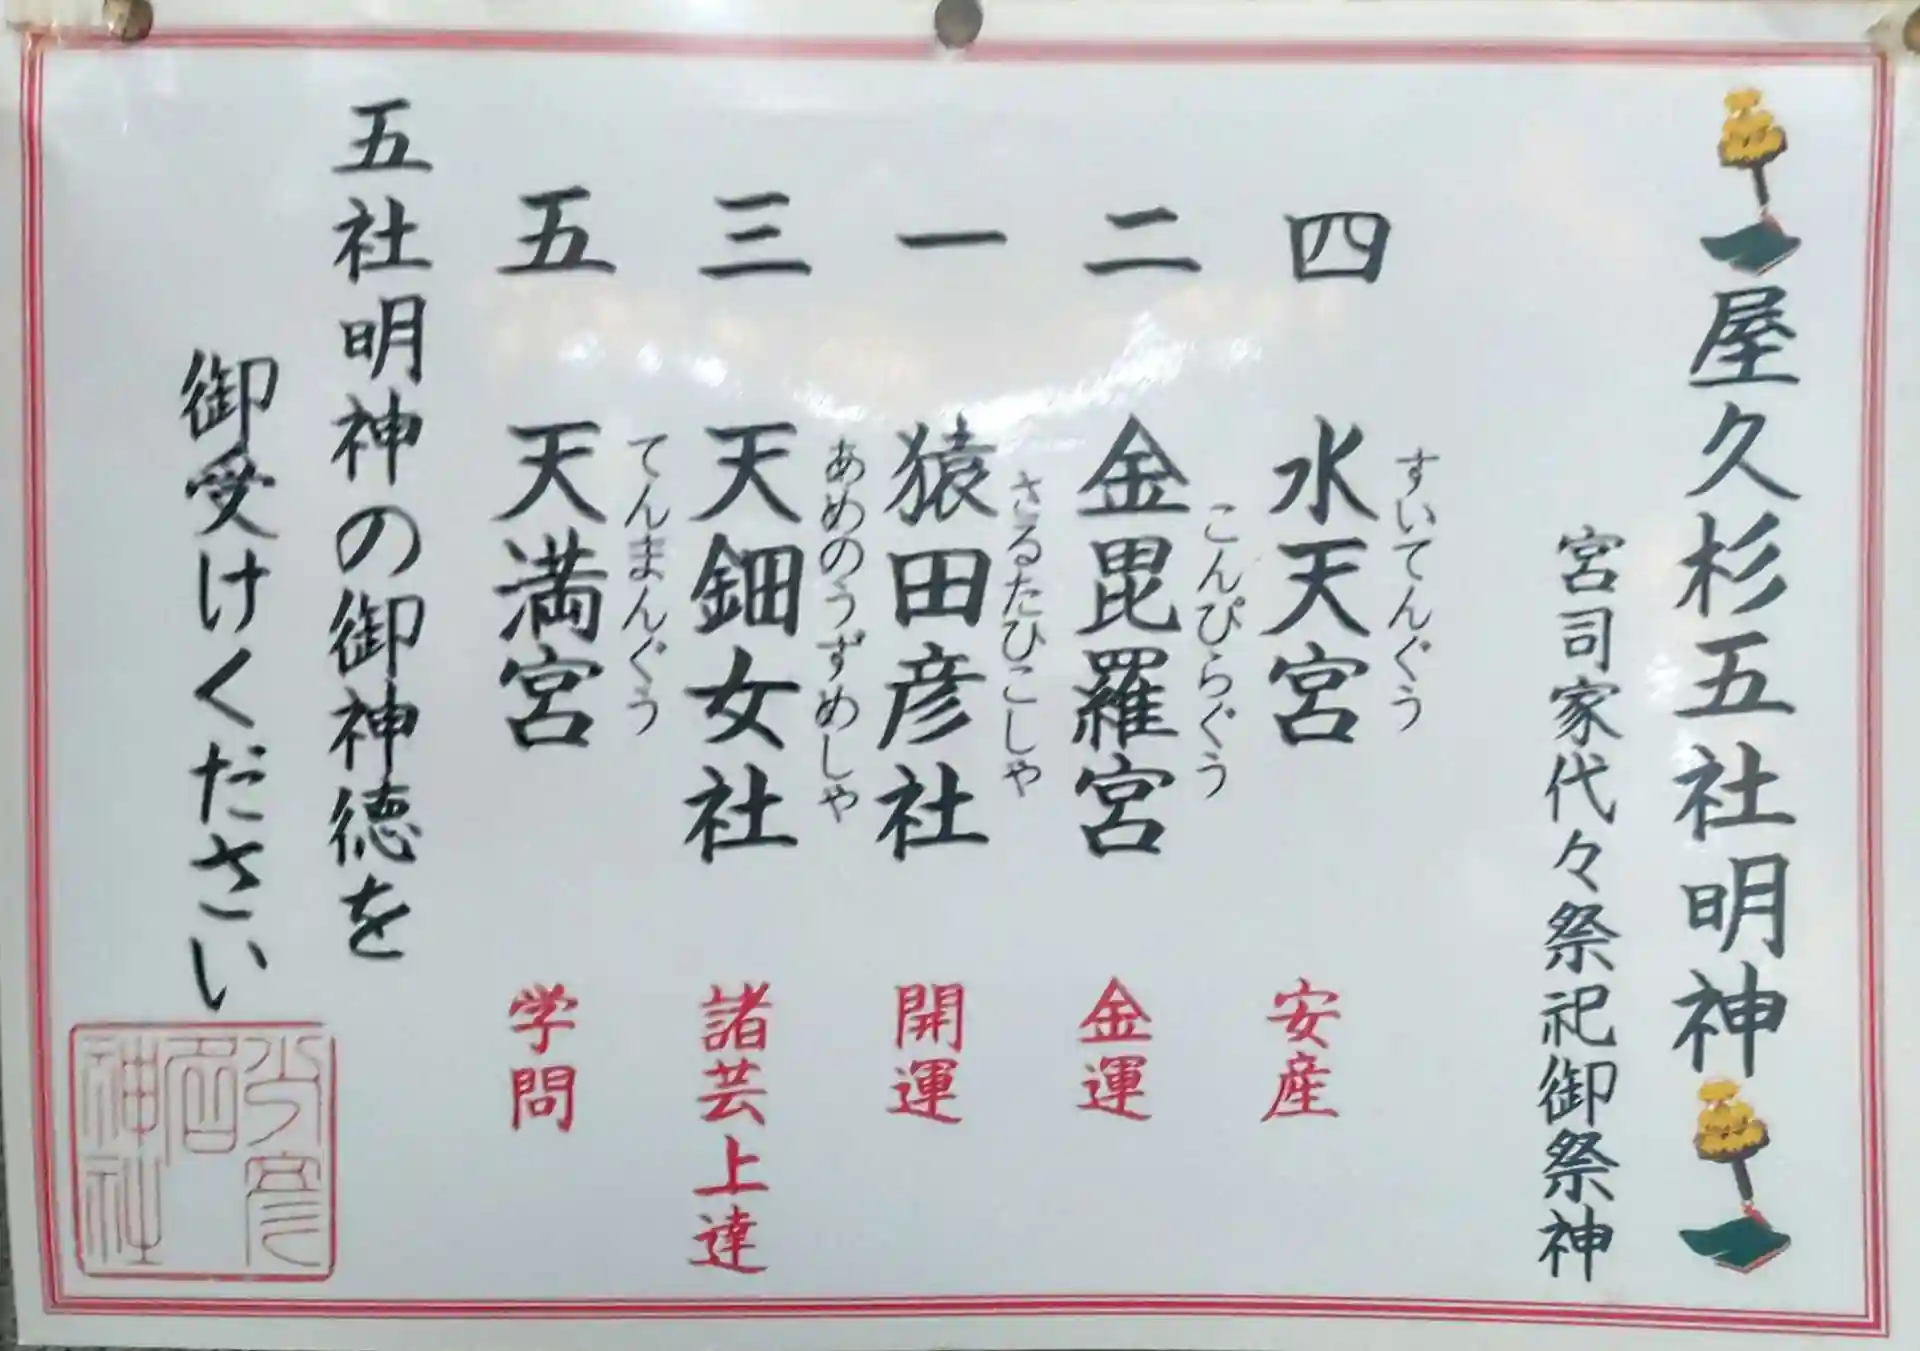 屋久杉五社明神
宮司家代々祭祀御祭神
四 水天宮 安産
すいてんぐう
二 金毘羅宮 金運
こんぴらぐう
一 猿田彦社 開運
さるたひこしゃ
三 天鈿女社 諸芸上達
あめのうずめしゃ
五 天満宮 学問
てんまんぐう
五社明神の御神徳を
御受けください
神社